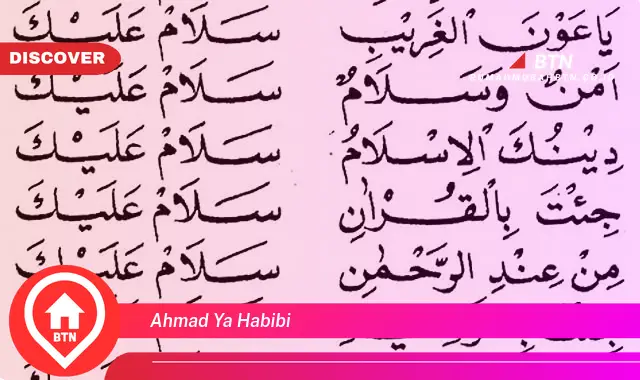 يَاعَوْنَ الْغَرِيْبِ سَلَامْ عَلَيْكَ
DISCOVER
BTN
RUMAHMURAHBTN.CO.ID
اَمْنٌ وَسَلَامٌ سَلَامْ عَلَيْكَ
دِيْنُكَ الْاِسْلَامُ سَلَامْ عَلَيْكَ
جِئْتَ بِالْقُرْاٰنِ سَلَامْ عَلَيْكَ
مِنْ عِنْدِ الرَّحْمٰنِ سَلَامْ عَلَيْكَ
Ahmad Ya Habibi
BTN